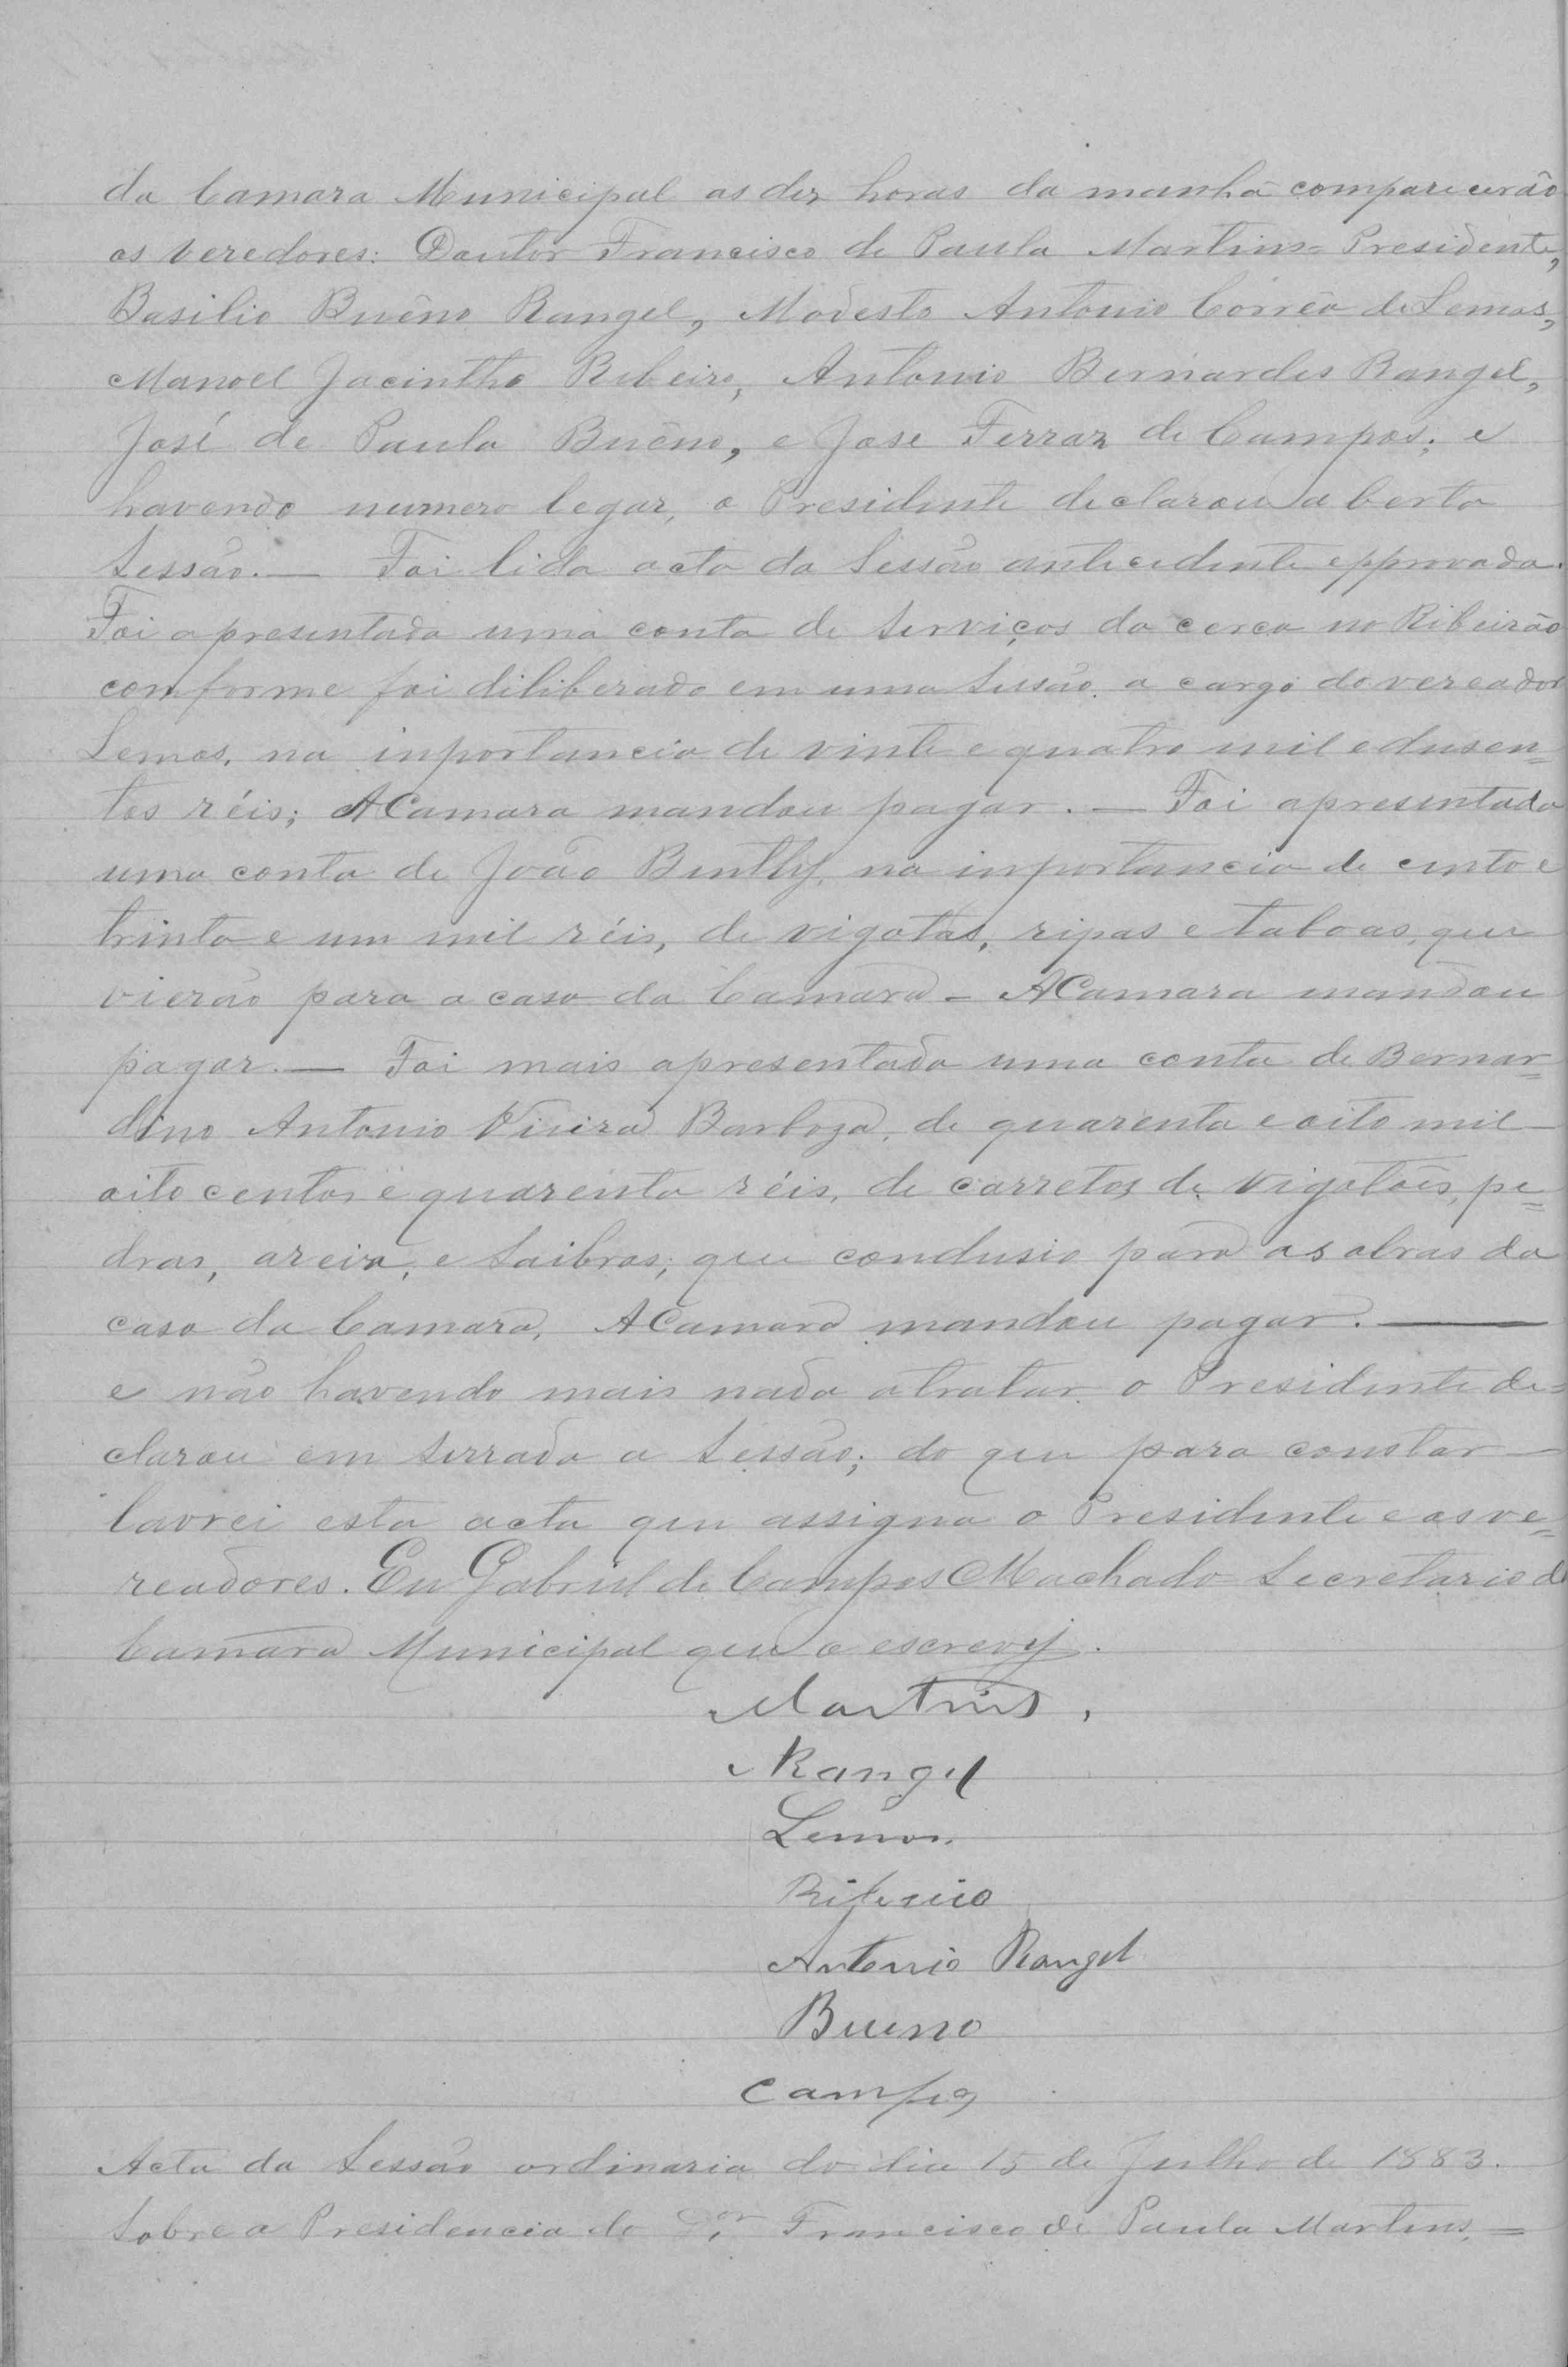 da Camara Municipal as dez horas da manhã comparicerão
os veredores: Doutor Francisco de Paula Martins= Presidente,
Basilio Buêno Rangel, Modesto Antonio Corrêa de Lemos,
Manoel Jacintho Ribeiro, Antonio Bernardes Rangel,
José de Paula Buêno, e Jose Ferraz de Campos; e
havendo numero legar, o Presidente declarou aberta
Sessão.— Foi lida acta da Sessão antecedente epprovada.
Foi apresentada uma conta de Serviços da cerca no Ribeirão
comforme foi diliberado em uma Sessão, a cargo do vereador
Lemos, na inportancia de vinte e quatro mil edusen=
tos réis; ACamara mandou pagar.— Foi apresentada
uma conta de João Benthy, na inportancia de cento e
trinta e um mil réis, de vigotas, ripas e taboas, que
vierão para a casa da Camara - ACamara mandou
pagar.— Foi mais apresentada uma conta de Bernar=
dino Antonio Vieira Barboza, de quarenta e oito mil
oito centos e quarenta réis, de carretos de vigotões, pe=
dras, areia, e Saibros; que condusio para as obras da
casa da Camara, ACamara mandou pagar.—
e não havendo mais nada atratar o Presidente de=
clarou em serrada a Sessão; do que para constar
lavrei esta acta que assigna o Presidente e os ve=
readores. Eu Gabriel de Campos Machado Secretario da
Camara Municipal que o escrevy.
Martins,
Rangel
Lemos.
Ribeiro
Antonio Rangel
Bueno
Campos
Acta da Sessão ordinaria do dia 15 de Julho de 1883.
Sobre a Presidencia do Dor. Francisco de Paula Martins,=